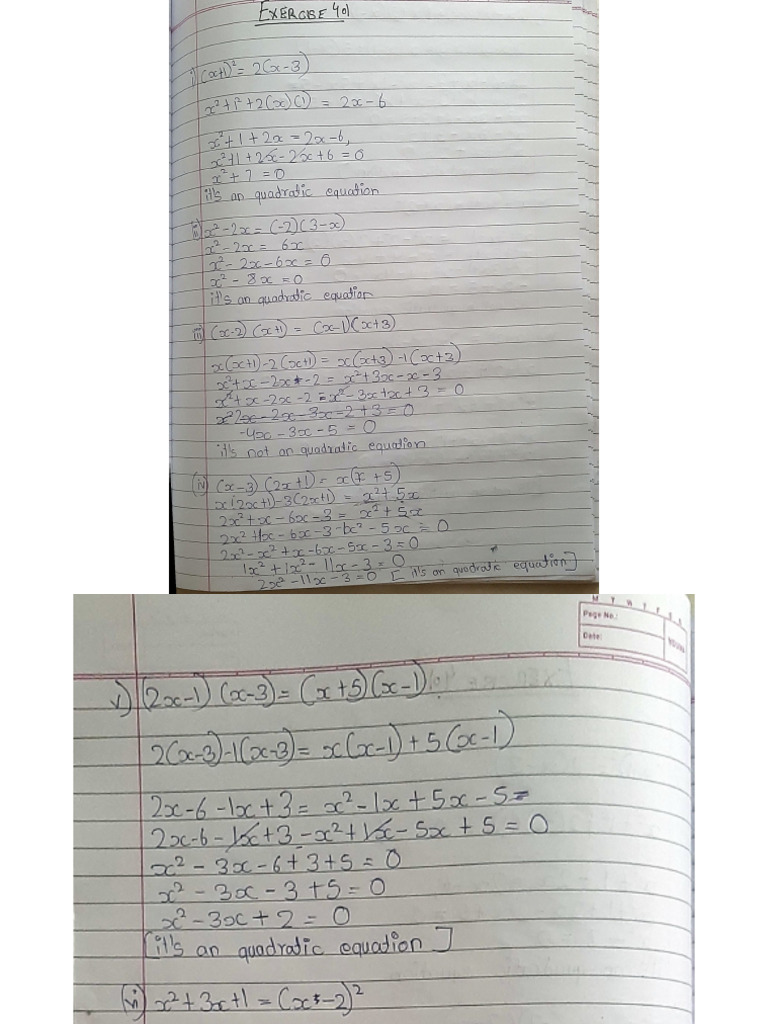 EXERCISE 4.1
i) (x+1)² = 2(x-3)
x²+1²+2(x)(1) = 2x-6
x²+1+2x = 2x-6,
x²+1+2x-2x+6 = 0
x²+7 = 0
it's an quadratic equation
ii) x²-2x = (-2)(3-x)
x²-2x = 6x
x²-2x-6x = 0
x²-8x = 0
it's an quadratic equation
iii) (x-2)(x+1) = (x-1)(x+3)
x(x+1)-2(x+1) = x(x+3)-1(x+3)
x²+x-2x-2 = x²+3x-x-3
x²+x-2x-2 = x²-3x+x+3 = 0
x²2x-2x-3x-2+3 = 0
-4x-3x-5 = 0
it's not an quadratic equation
iv) (x-3)(2x+1) = x(x+5)
x(2x+1)-3(2x+1) = x²+5x
2x²+x-6x-3 = x²+5x
2x²+1x-6x-3-x²-5x = 0
2x²-x²+x-6x-5x-3 = 0
1x²+1x²-11x-3 = 0
2x²-11x-3 = 0 [it's an quadratic equation]
M T W T F S S
Page No.:
Date:
v) (2x-1)(x-3) = (x+5)(x-1)
2(x-3)-1(x-3) = x(x-1)+5(x-1)
2x-6-1x+3 = x²-1x+5x-5=
2x-6-1x+3-x²+1x-5x+5 = 0
x²-3x-6+3+5 = 0
x²-3x-3+5 = 0
x²-3x+2 = 0
[it's an quadratic equation]
vi) x²+3x+1 = (x-2)²